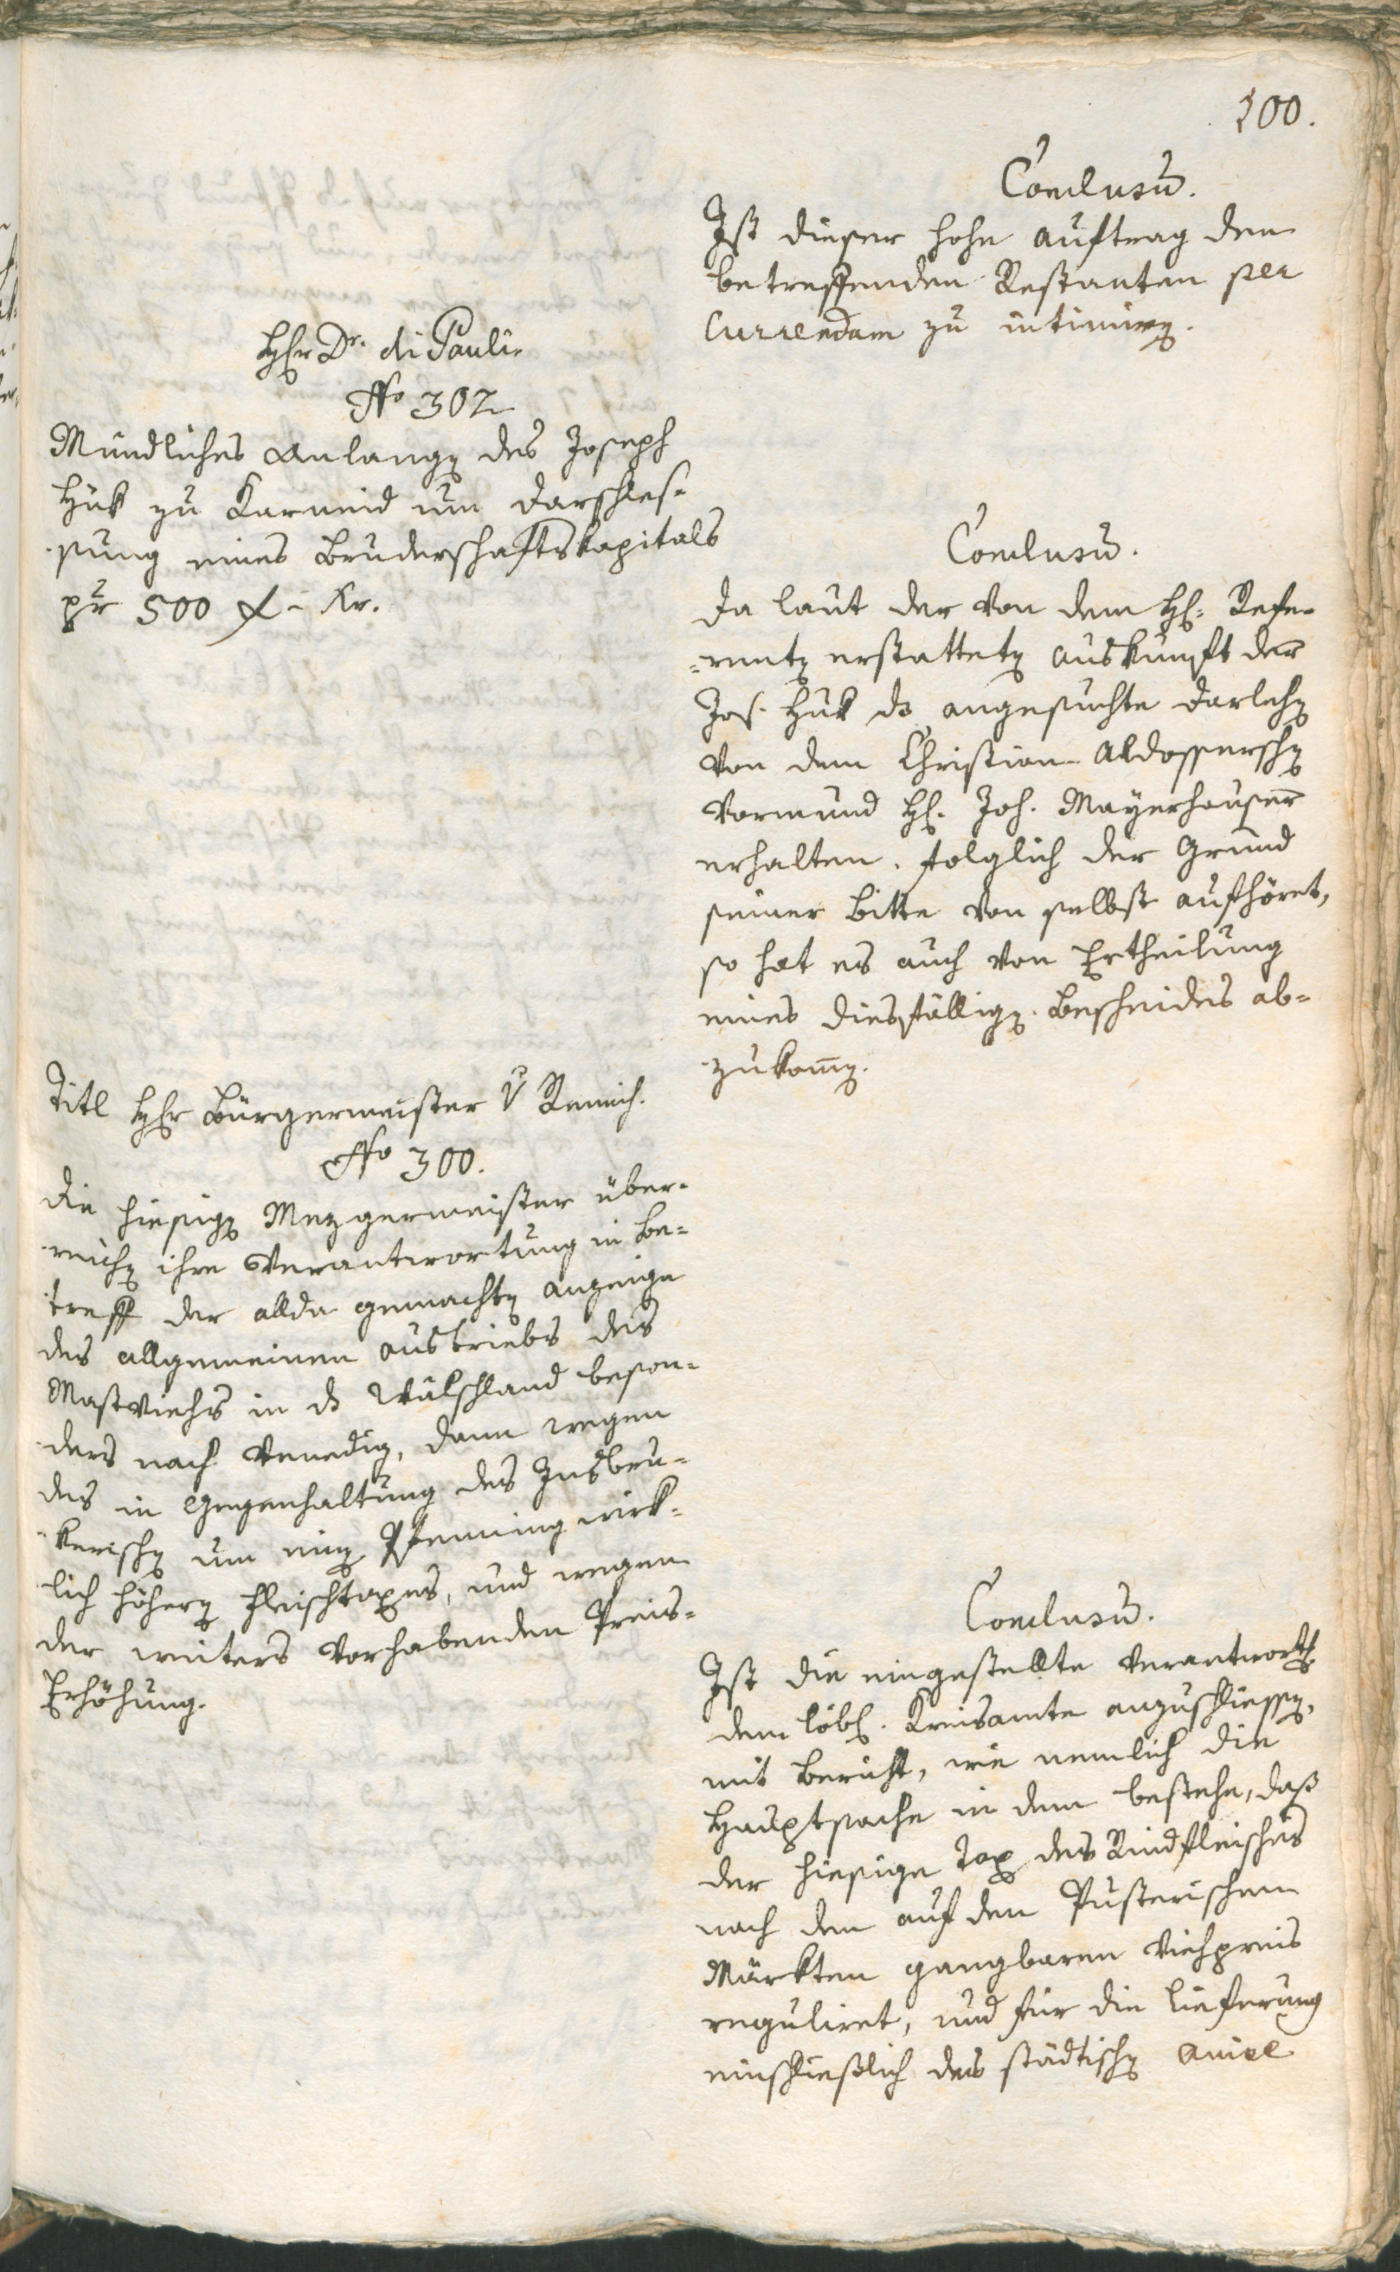 100.
Conclusū.
Ist dieser hohe Auftrag den
betreffenden Restanten per
Currendam zu intimirn.
Hr Dr. di Pauli.
No 302
Mündliches Anlangen des Joseph
Huk zu Karneid um Darschies-
sung eines Bruderschaftskapitals
pr 500 f - kr.
Conclusū.
Da laut der von dem H. Refe-
-renten erstatteten Auskunft der
Jos. Huk das angesuchte Darlehen
von dem Christian Aldosserschen
Vormund H. Joh. Mayrhauser
erhalten, folglich der Grund
seiner Bitte von selbst aufhöret,
so hat es auch von Ertheilung
eines diesfälligen Bescheides ab-
zukomen.
Titl Hr Bürgermeister v Remich.
No 300.
Die hiesigen Mezgermeister über-
reichen ihre Verantwortung in Be-
treff der allda gemachten Anzeige
des allgemeinen Austriebs des
Mastviehs in das Wälschland beson-
ders nach Venedig, dann wegen
des in Gegenhaltung des Insbru-
kerischen um einen Pfenning wirk-
lich höhern Fleischtaxes, und wegen
der weiters vorhabenden Preis-
Erhöhung.
Conclusū.
Ist die eingestellte Verantwort
dem löbl. Kreisamte anzuschliessen,
mit Bericht, wie nemlich die
Hauptsache in dem bestehe, daß
der hiesige Tax des Rindfleisches
nach dem auf den Pusterischen
Märkten gangbaren Viehpreis
regulirt, und für die Lieferung
einschließlich des städtischen